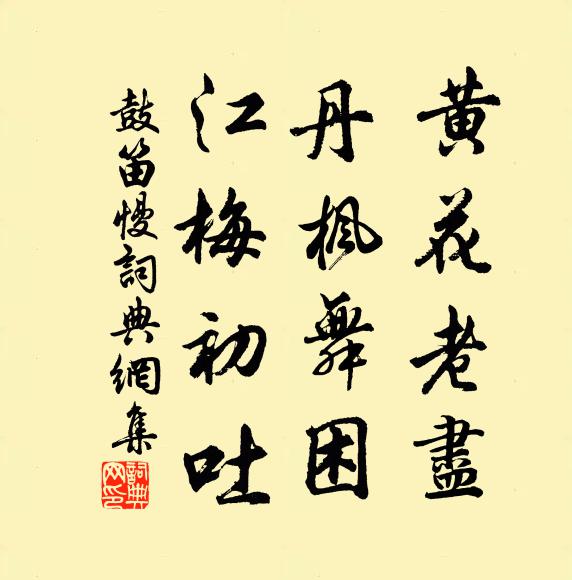 黃花老盡
丹楓舞困
江梅初吐
鼓笛慢詞典網集
詞典網印